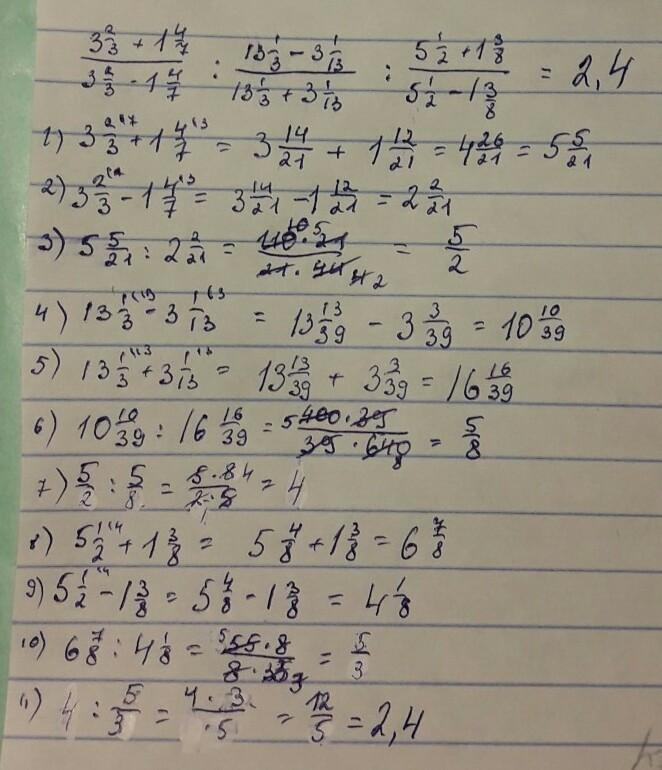 (3 2/3 + 1 4/7)/(3 2/3 - 1 4/7) : (13 1/3 - 3 1/13)/(13 1/3 + 3 1/13) : (5 1/2 + 1 3/8)/(5 1/2 - 1 3/8) = 2,4
1) 3 2/3 + 1 4/7 = 3 14/21 + 1 12/21 = 4 26/21 = 5 5/21
2) 3 2/3 - 1 4/7 = 3 14/21 - 1 12/21 = 2 2/21
3) 5 5/21 : 2 2/21 = (110·21)/(21·44) = 5/2
4) 13 1/3 - 3 1/13 = 13 13/39 - 3 3/39 = 10 10/39
5) 13 1/3 + 3 1/13 = 13 13/39 + 3 3/39 = 16 16/39
6) 10 10/39 : 16 16/39 = (400·39)/(39·640) = 5/8
7) 5/2 : 5/8 = (5·8)/(2·5) = 4
8) 5 1/2 + 1 3/8 = 5 4/8 + 1 3/8 = 6 7/8
9) 5 1/2 - 1 3/8 = 5 4/8 - 1 3/8 = 4 1/8
10) 6 7/8 : 4 1/8 = (55·8)/(8·33) = 5/3
11) 4 : 5/3 = (4·3)/(·5) = 12/5 = 2,4